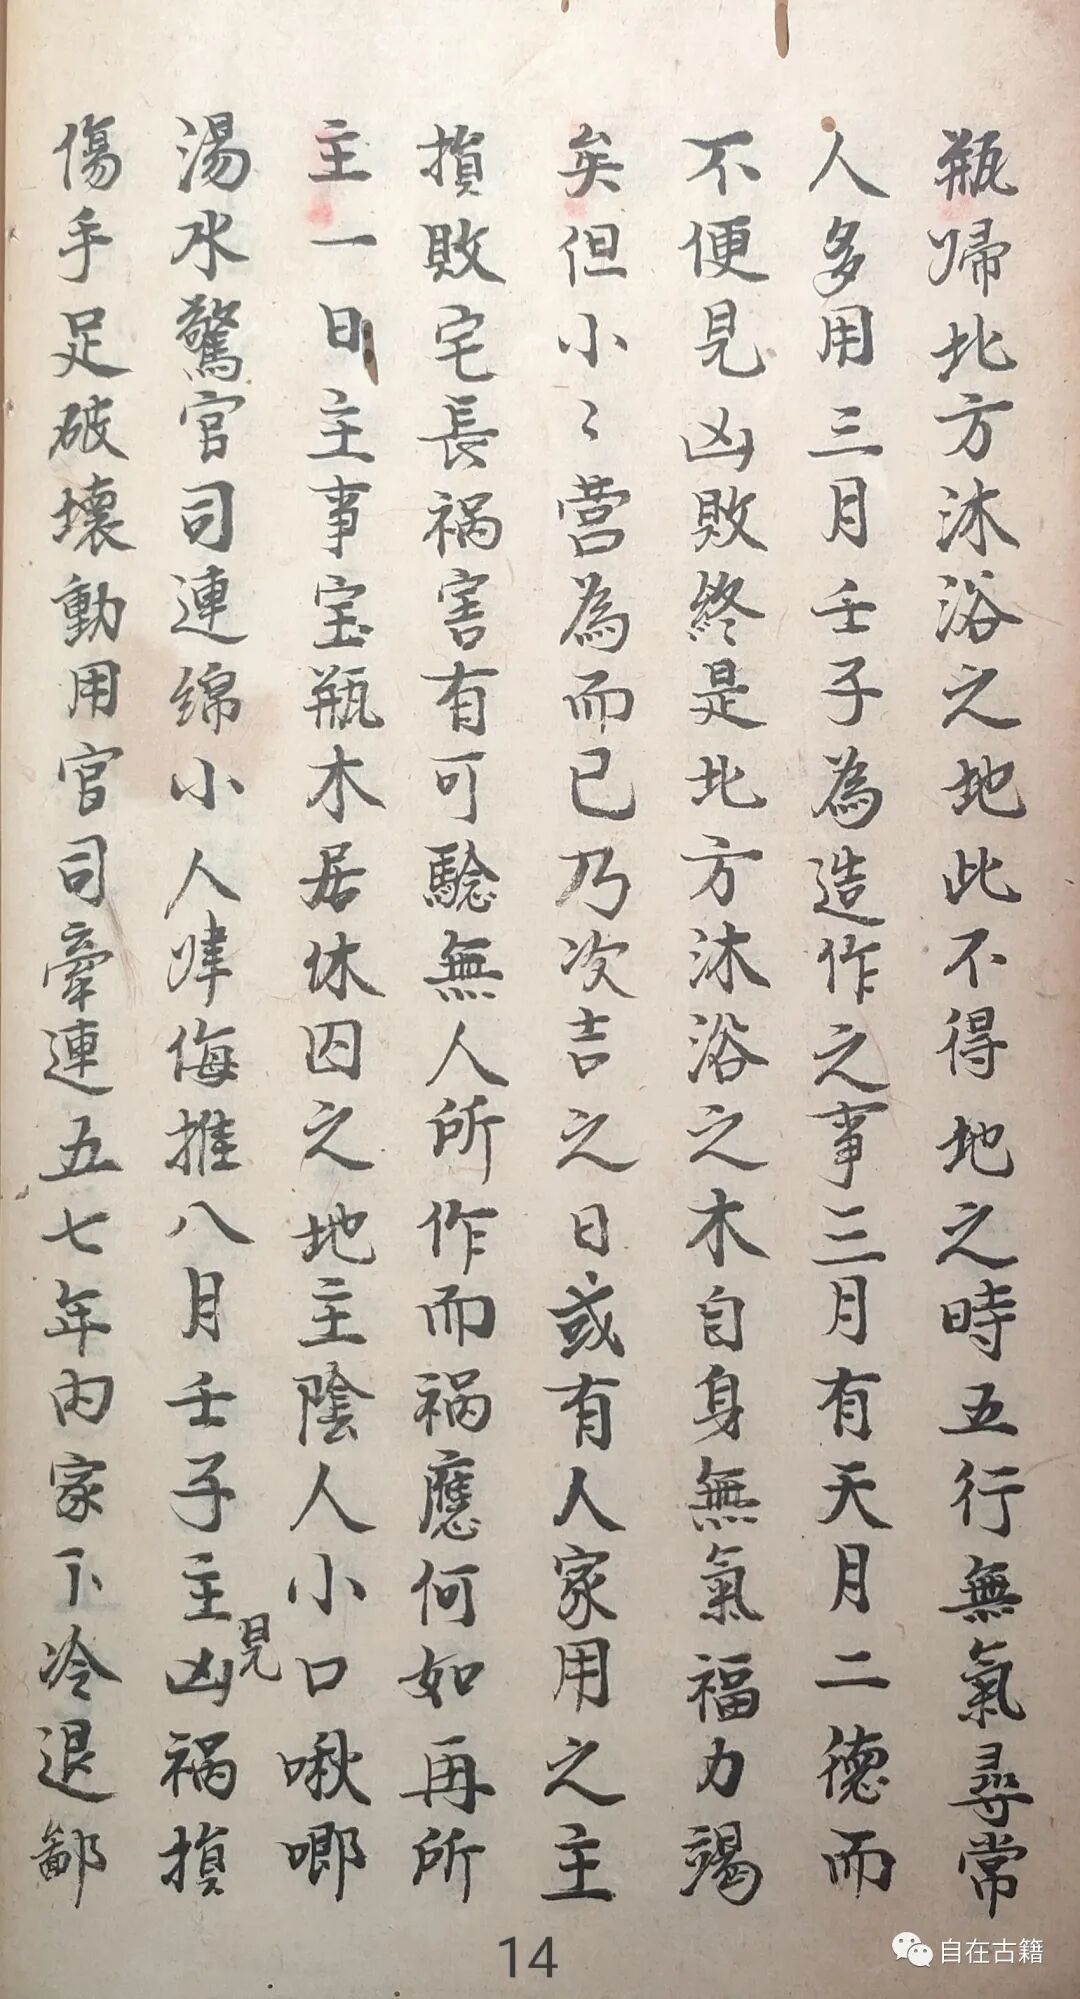 瓶歸北方沐浴之地此不得地之時五行無氣尋常
人多用三月壬子為造作之事三月有天月二德而
不便見凶敗終是北方沐浴之木自身無氣福力竭
矣但小〻营為而已乃次吉之日或有人家用之主
損敗宅長禍害有可驗無人所作而禍應何如再所
主一日主事宝瓶木居休囚之地主陰人小口啾唧
湯水驚官司連綿小人嗶侮推八月壬子主見凶禍損
傷手足破壞動用官司牽連五七年內家下冷退鄙
14
自在古籍